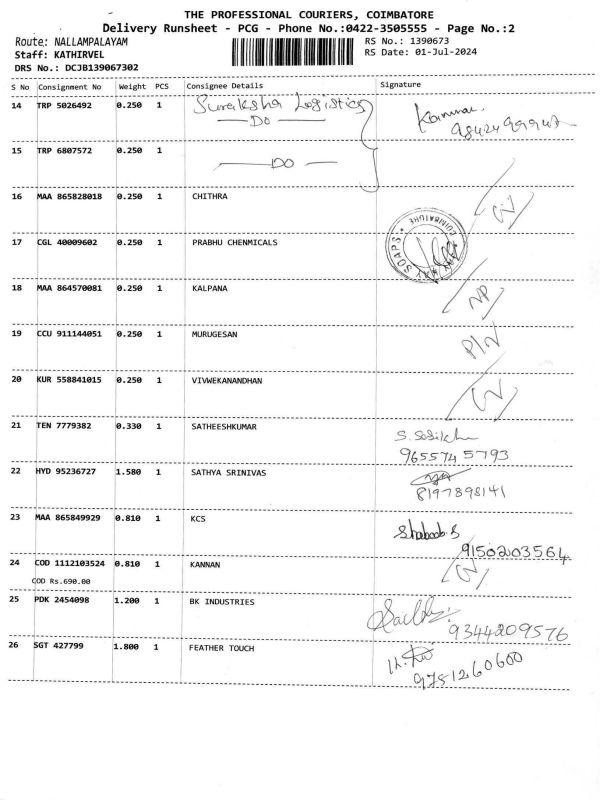 THE PROFESSIONAL COURIERS, COIMBATORE
Delivery Runsheet - PCG - Phone No.:0422-3505555 - Page No.:2
Route: NALLAMPALAYAM
RS No.: 1390673
Staff: KATHIRVEL
RS Date: 01-Jul-2024
DRS No.: DCJB139067302
S No Consignment No Weight PCS Consignee Details Signature
14 TRP 5026492 0.250 1 Suraksha Logistics
DO
15 TRP 6807572 0.250 1
DO
16 MAA 865828018 0.250 1 CHITHRA
17 CGL 40009602 0.250 1 PRABHU CHENMICALS
COIMBATORE
SOAPS
18 MAA 864570081 0.250 1 KALPANA NP
19 CCU 911144051 0.250 1 MURUGESAN
20 KUR 558841015 0.250 1 VIVWEKANANDHAN
21 TEN 7779382 0.330 1 SATHEESHKUMAR
9655745793
22 HYD 95236727 1.580 1 SATHYA SRINIVAS
8197898141
23 MAA 865849929 0.810 1 KCS
9150203564
24 COD 1112103524 0.810 1 KANNAN
COD Rs.690.00
25 PDK 2454098 1.200 1 BK INDUSTRIES
9344209576
26 SGT 427799 1.800 1 FEATHER TOUCH
9751260600